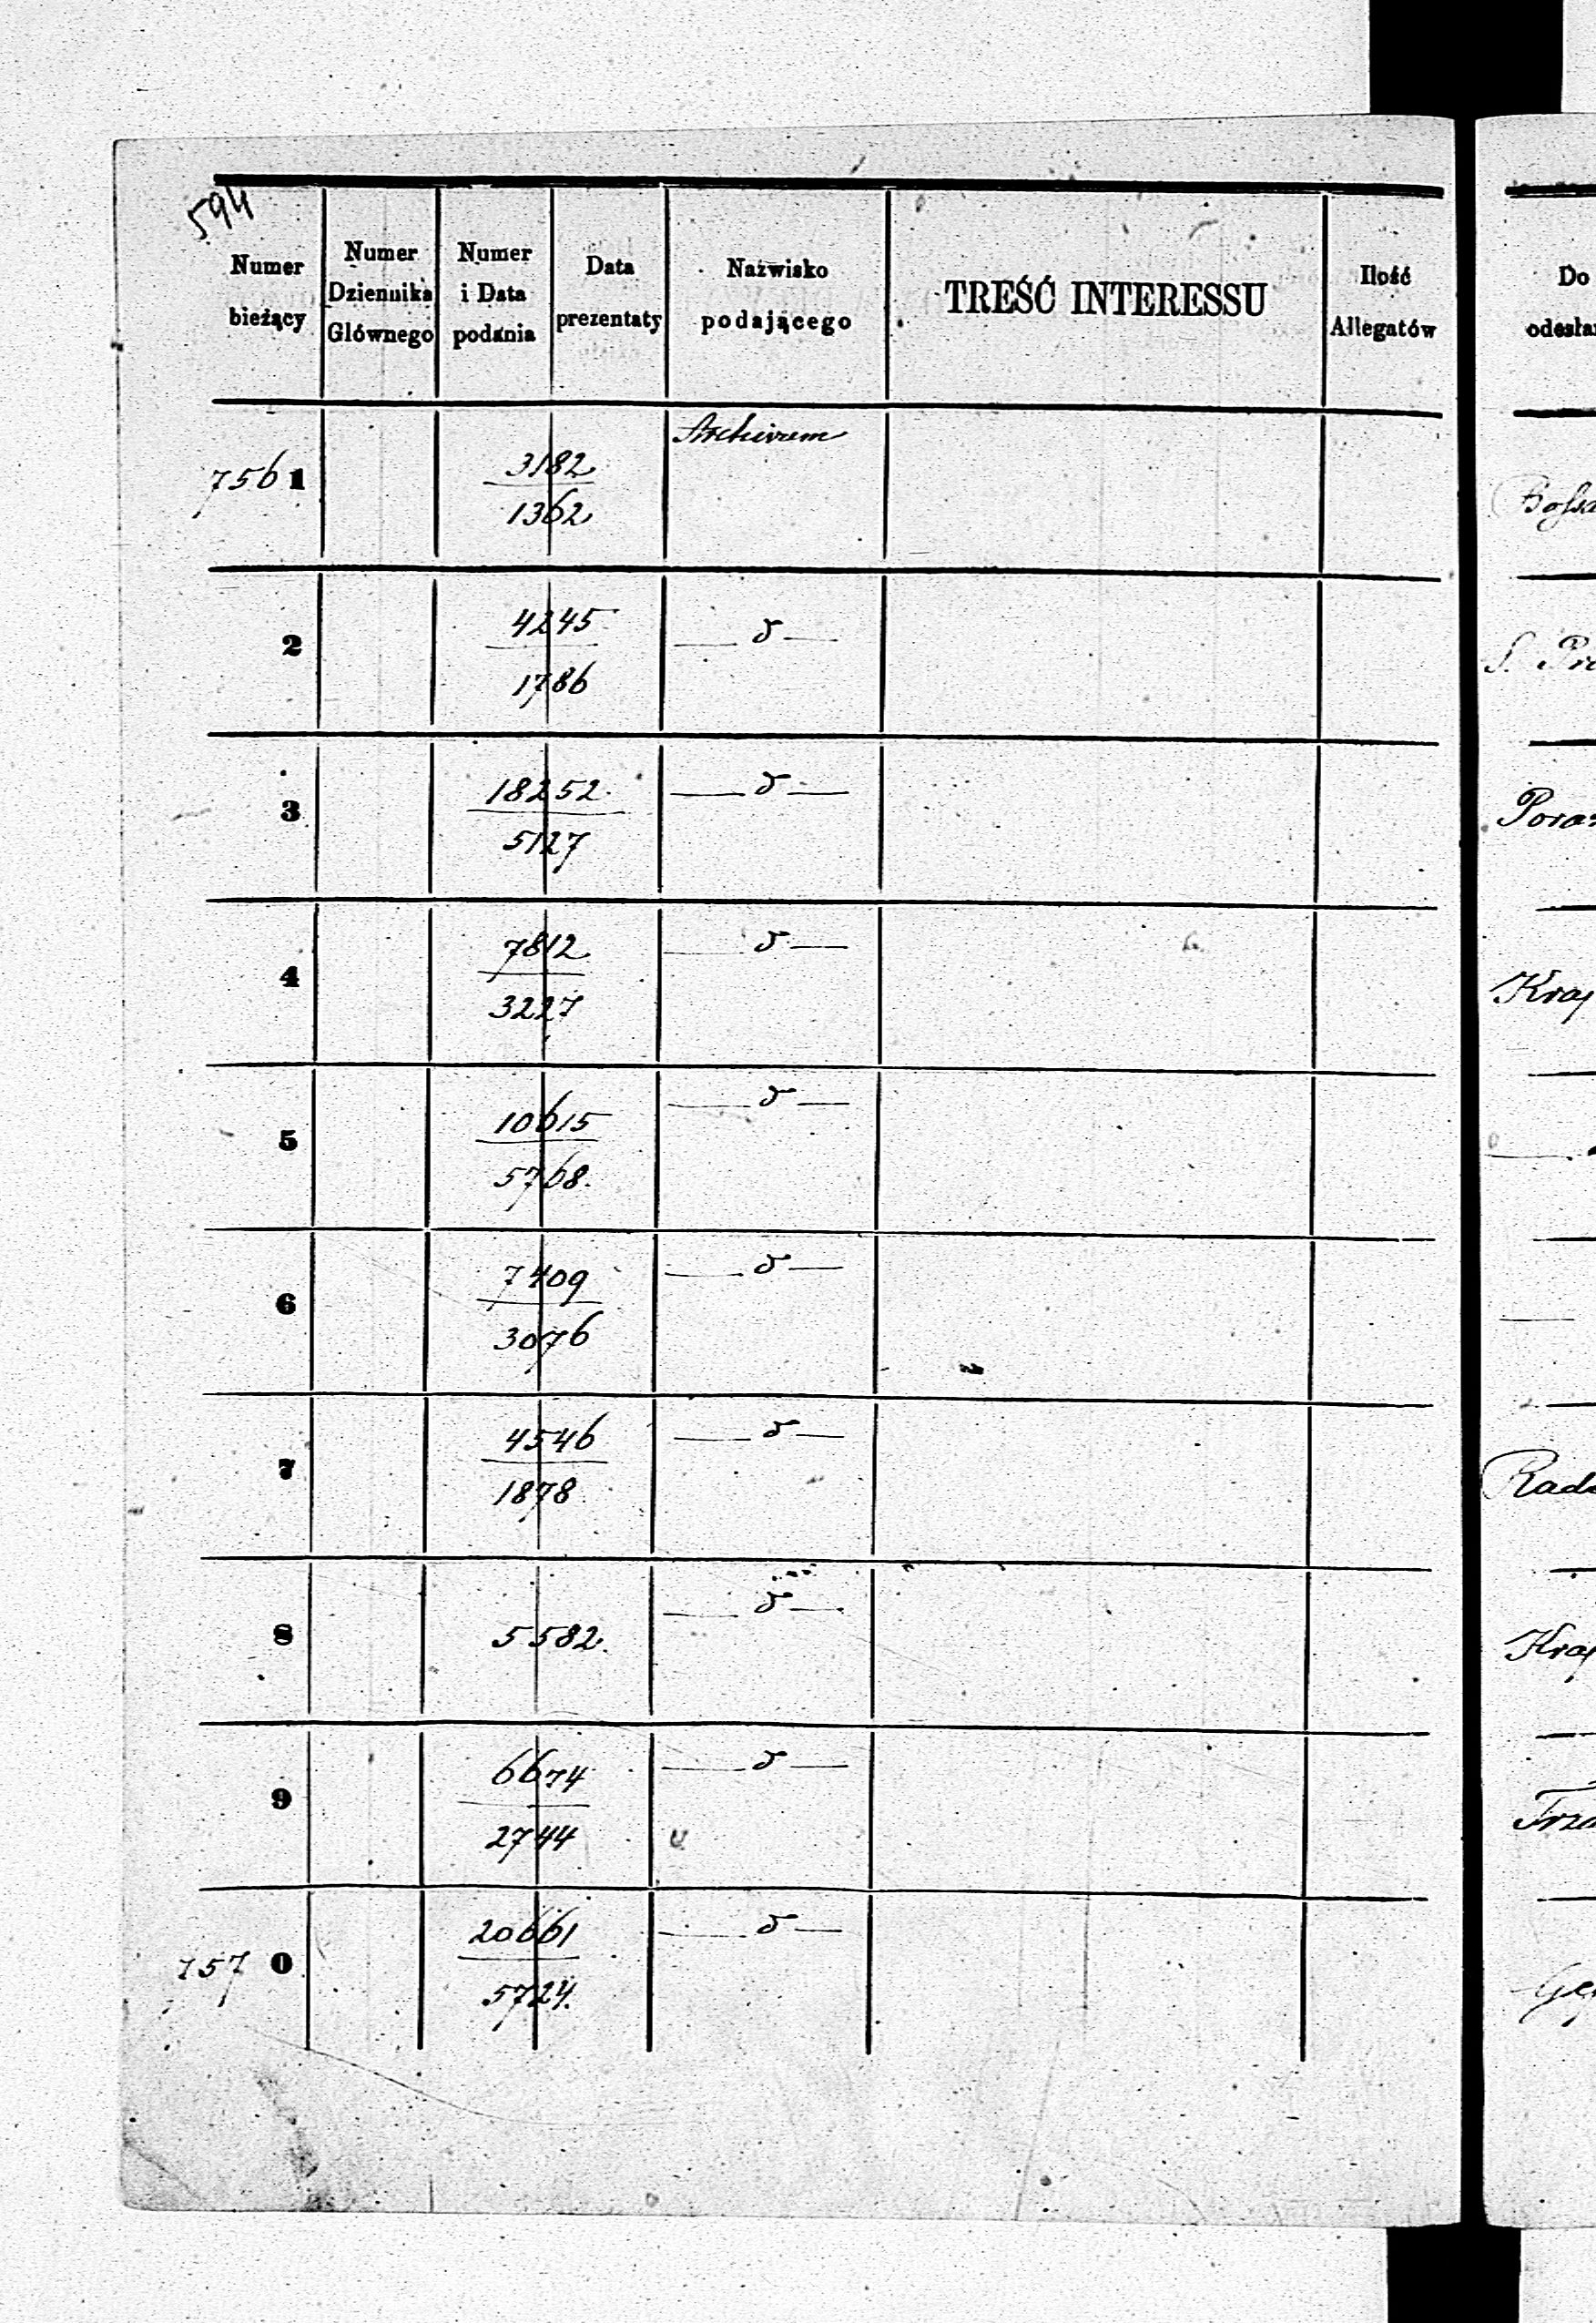 594
Numer bieżący
Numer Dziennika Głównego
Numer i Data podania
Data prezentaty
Nazwisko podającego
TREŚĆ INTERESSU
Ilość Allegatów
Do
7561
3182
1362
Archivum
2
4245
1786
— δ —
3
18252
5127
— δ —
4
7812
3227
— δ —
5
10615
5768
— δ —
6
7409
3076
— δ —
7
4546
1878
— δ —
8
5582
— δ —
9
6674
2744
— δ —
7570
20661
5724
— δ —